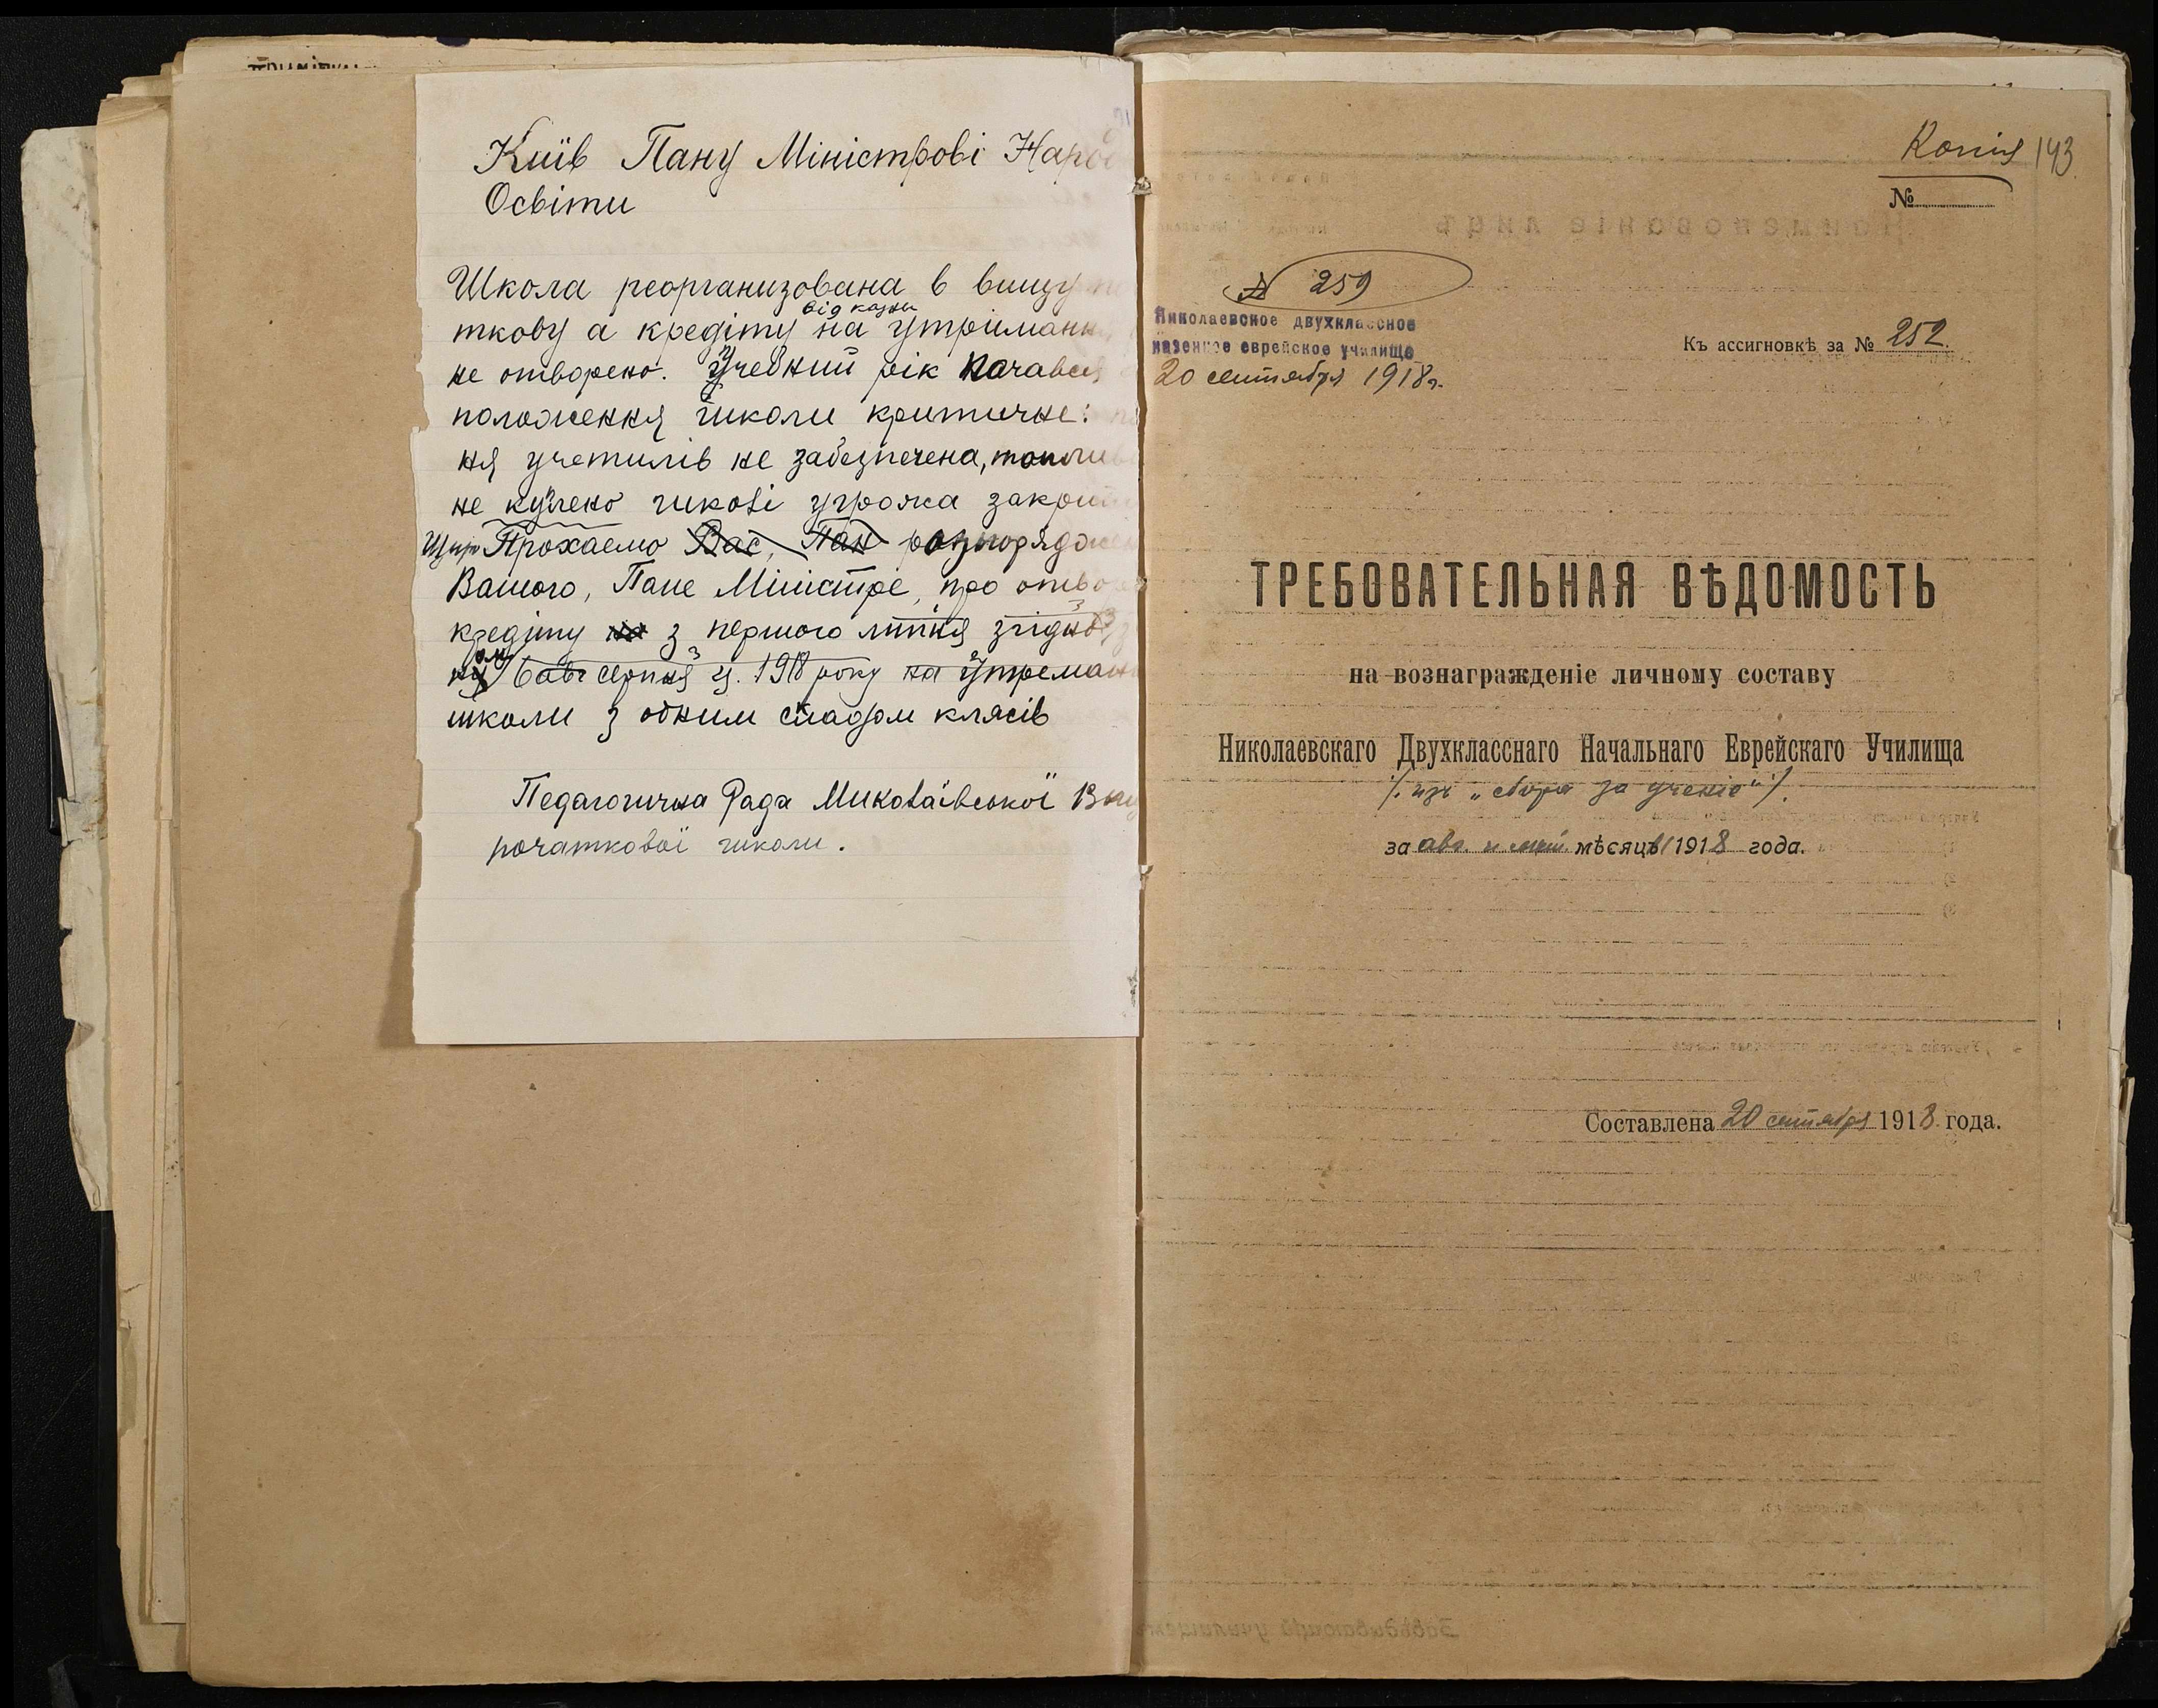 Київ Пану Міністрові Народ
Освіти
Школа реорганизована в вищу по
від казни
ткову а кредіту на утріманн
не отворено. Учебний рік почався
положення школи критичне:
ня учетилів не забезпечена, топлив
не куплено школі угрожа закрит
Щиро Прохаемо Вас, Пан розпоряджен
Вашого, Пане Міністре, про отво
кредіту на з першого липня згідно з
6 серпня ц. 1918 року на утреман
школи з одним складом клясів
Педагогична Рада Миколаївської Вищ
початкової школи.
Копія 143
№
№ 259
Николаевское двухклассное
казенное еврейское училище
20 сентября 1918 г.
Къ ассигновкѣ за № 252.
ТРЕБОВАТЕЛЬНАЯ ВѢДОМОСТЬ
на вознагражденіе личному составу
Николаевскаго Двухкласснаго Начальнаго Еврейскаго Училища
/. изъ „сбора за ученіе" /.
за авг. и сент. мѣсяцъ 1918 года.
Составлена 20 сентября 1918 года.